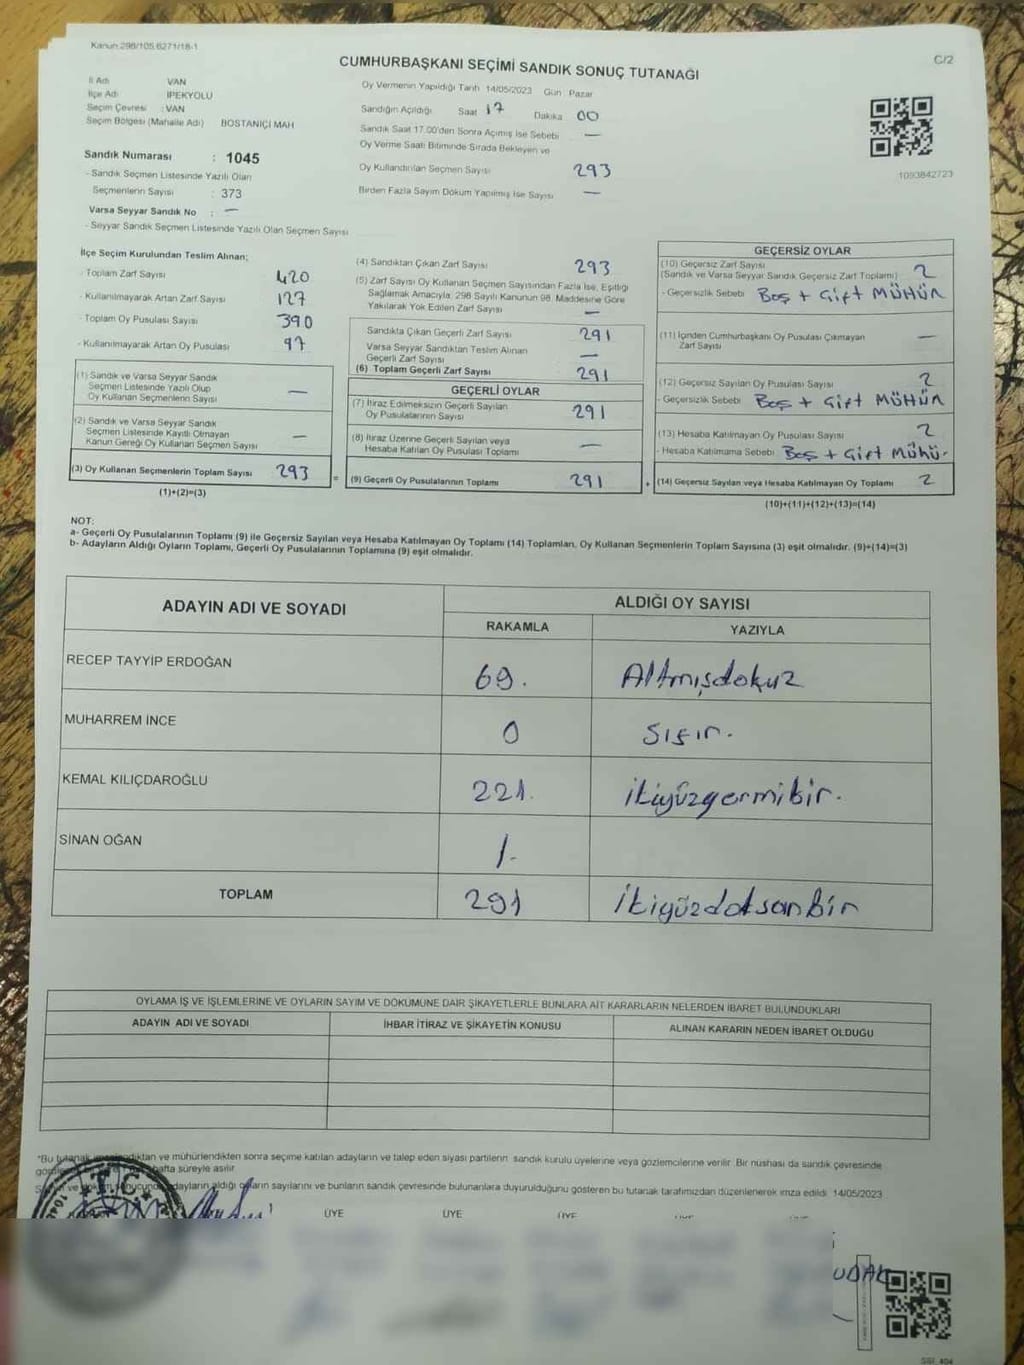 Kanun 298/105,6271/18-1
C/2
CUMHURBAŞKANI SEÇİMİ SANDIK SONUÇ TUTANAĞI
İl Adı VAN
İlçe Adı İPEKYOLU
Seçim Çevresi : VAN
Seçim Bölgesi (Mahalle Adı) BOSTANİÇİ MAH
Sandık Numarası : 1045
- Sandık Seçmen Listesinde Yazılı Olan
Seçmenlerin Sayısı : 373
Varsa Seyyar Sandık No : —
- Seyyar Sandık Seçmen Listesinde Yazılı Olan Seçmen Sayısı
Oy Vermenin Yapıldığı Tarih 14/05/2023 Gün Pazar
Sandığın Açıldığı Saat 17 Dakika 00
Sandık Saat 17.00'den Sonra Açılmış İse Sebebi —
Oy Verme Saati Bitiminde Sırada Bekleyen ve
Oy Kullandırılan Seçmen Sayısı 293
Birden Fazla Sayım Döküm Yapılmış İse Sayısı —
1093842723
İlçe Seçim Kurulundan Teslim Alınan;
- Toplam Zarf Sayısı 420
- Kullanılmayarak Artan Zarf Sayısı 127
- Toplam Oy Pusulası Sayısı 390
- Kullanılmayarak Artan Oy Pusulası 97
(1) Sandık ve Varsa Seyyar Sandık
Seçmen Listesinde Yazılı Olup
Oy Kullanan Seçmenlerin Sayısı —
(2) Sandık ve Varsa Seyyar Sandık
Seçmen Listesinde Kayıtlı Olmayan
Kanun Gereği Oy Kullanan Seçmen Sayısı —
(3) Oy Kullanan Seçmenlerin Toplam Sayısı 293
(1)+(2)=(3)
(4) Sandıktan Çıkan Zarf Sayısı 293
(5) Zarf Sayısı Oy Kullanan Seçmen Sayısından Fazla İse, Eşitliği
Sağlamak Amacıyla; 298 Sayılı Kanunun 98. Maddesine Göre
Yakılarak Yok Edilen Zarf Sayısı —
Sandıkta Çıkan Geçerli Zarf Sayısı 291
Varsa Seyyar Sandıktan Teslim Alınan
Geçerli Zarf Sayısı —
(6) Toplam Geçerli Zarf Sayısı 291
GEÇERLİ OYLAR
(7) İtiraz Edilmeksizin Geçerli Sayılan
Oy Pusulalarının Sayısı 291
(8) İtiraz Üzerine Geçerli Sayılan veya
Hesaba Katılan Oy Pusulası Toplamı —
= (9) Geçerli Oy Pusulalarının Toplamı 291
GEÇERSİZ OYLAR
(10) Geçersiz Zarf Sayısı
(Sandık ve Varsa Seyyar Sandık Geçersiz Zarf Toplamı) 2
- Geçersizlik Sebebi Boş + Çift MÜHÜR
(11) İçinden Cumhurbaşkanı Oy Pusulası Çıkmayan
Zarf Sayısı —
(12) Geçersiz Sayılan Oy Pusulası Sayısı 2
- Geçersizlik Sebebi Boş + Çift MÜHÜR
(13) Hesaba Katılmayan Oy Pusulası Sayısı 2
- Hesaba Katılmama Sebebi Boş + Çift Mühü-
+ (14) Geçersiz Sayılan veya Hesaba Katılmayan Oy Toplamı 2
(10)+(11)+(12)+(13)=(14)
NOT:
a- Geçerli Oy Pusulalarının Toplamı (9) ile Geçersiz Sayılan veya Hesaba Katılmayan Oy Toplamı (14) Toplamları, Oy Kullanan Seçmenlerin Toplam Sayısına (3) eşit olmalıdır. (9)+(14)=(3)
b- Adayların Aldığı Oyların Toplamı, Geçerli Oy Pusulalarının Toplamına (9) eşit olmalıdır.
ADAYIN ADI VE SOYADI
ALDIĞI OY SAYISI
RAKAMLA YAZIYLA
RECEP TAYYİP ERDOĞAN 69. Altmışdokuz
MUHARREM İNCE 0 sıfır.
KEMAL KILIÇDAROĞLU 221. ikiyüzyermibir.
SİNAN OĞAN 1.
TOPLAM 291 İkiyüzdoksanbir
OYLAMA İŞ VE İŞLEMLERİNE VE OYLARIN SAYIM VE DÖKÜMÜNE DAİR ŞİKAYETLERLE BUNLARA AİT KARARLARIN NELERDEN İBARET BULUNDUKLARI
ADAYIN ADI VE SOYADI İHBAR İTİRAZ VE ŞİKAYETİN KONUSU ALINAN KARARIN NEDEN İBARET OLDUĞU
*Bu tutanak ve mühürlendikten sonra seçime katılan adayların ve talep eden siyasi partilerin sandık kurulu üyelerine veya gözlemcilerine verilir. Bir nüshası da sandık çevresinde
hafta süreyle asılır.
adayların aldığı oyların sayılarını ve bunların sandık çevresinde bulunanlara duyurulduğunu gösteren bu tutanak tarafımızdan düzenlenerek imza edildi. 14/05/2023
T.C.
ÜYE ÜYE ÜYE